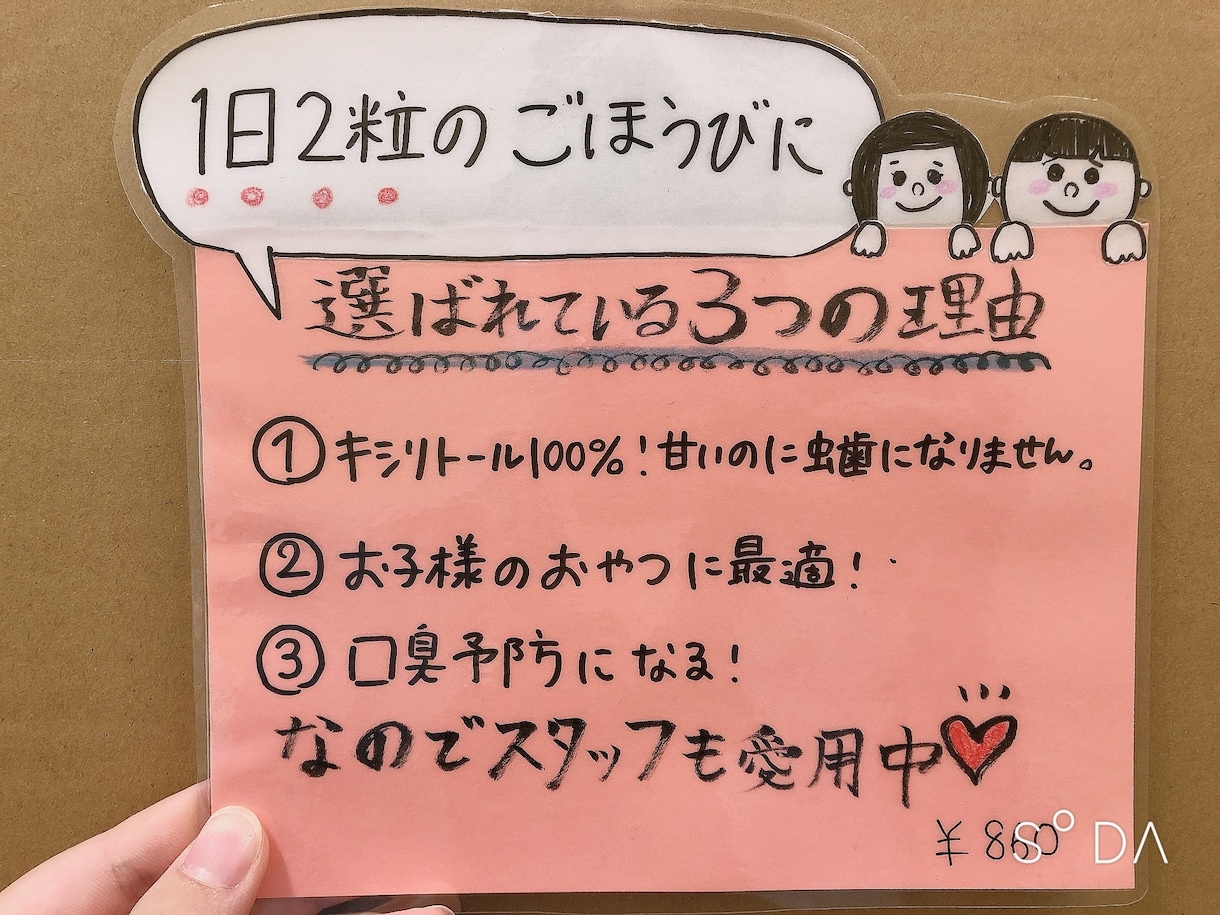 1日2粒のごほうびに
選ばれている3つの理由
① キシリトール100%!甘いのに虫歯になりません。
② お子様のおやつに最適!
③ 口臭予防になる!
なのでスタッフも愛用中
¥860
SODA